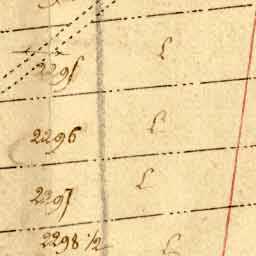 2295 L
2296 L
2297 L
2298 1/2 L